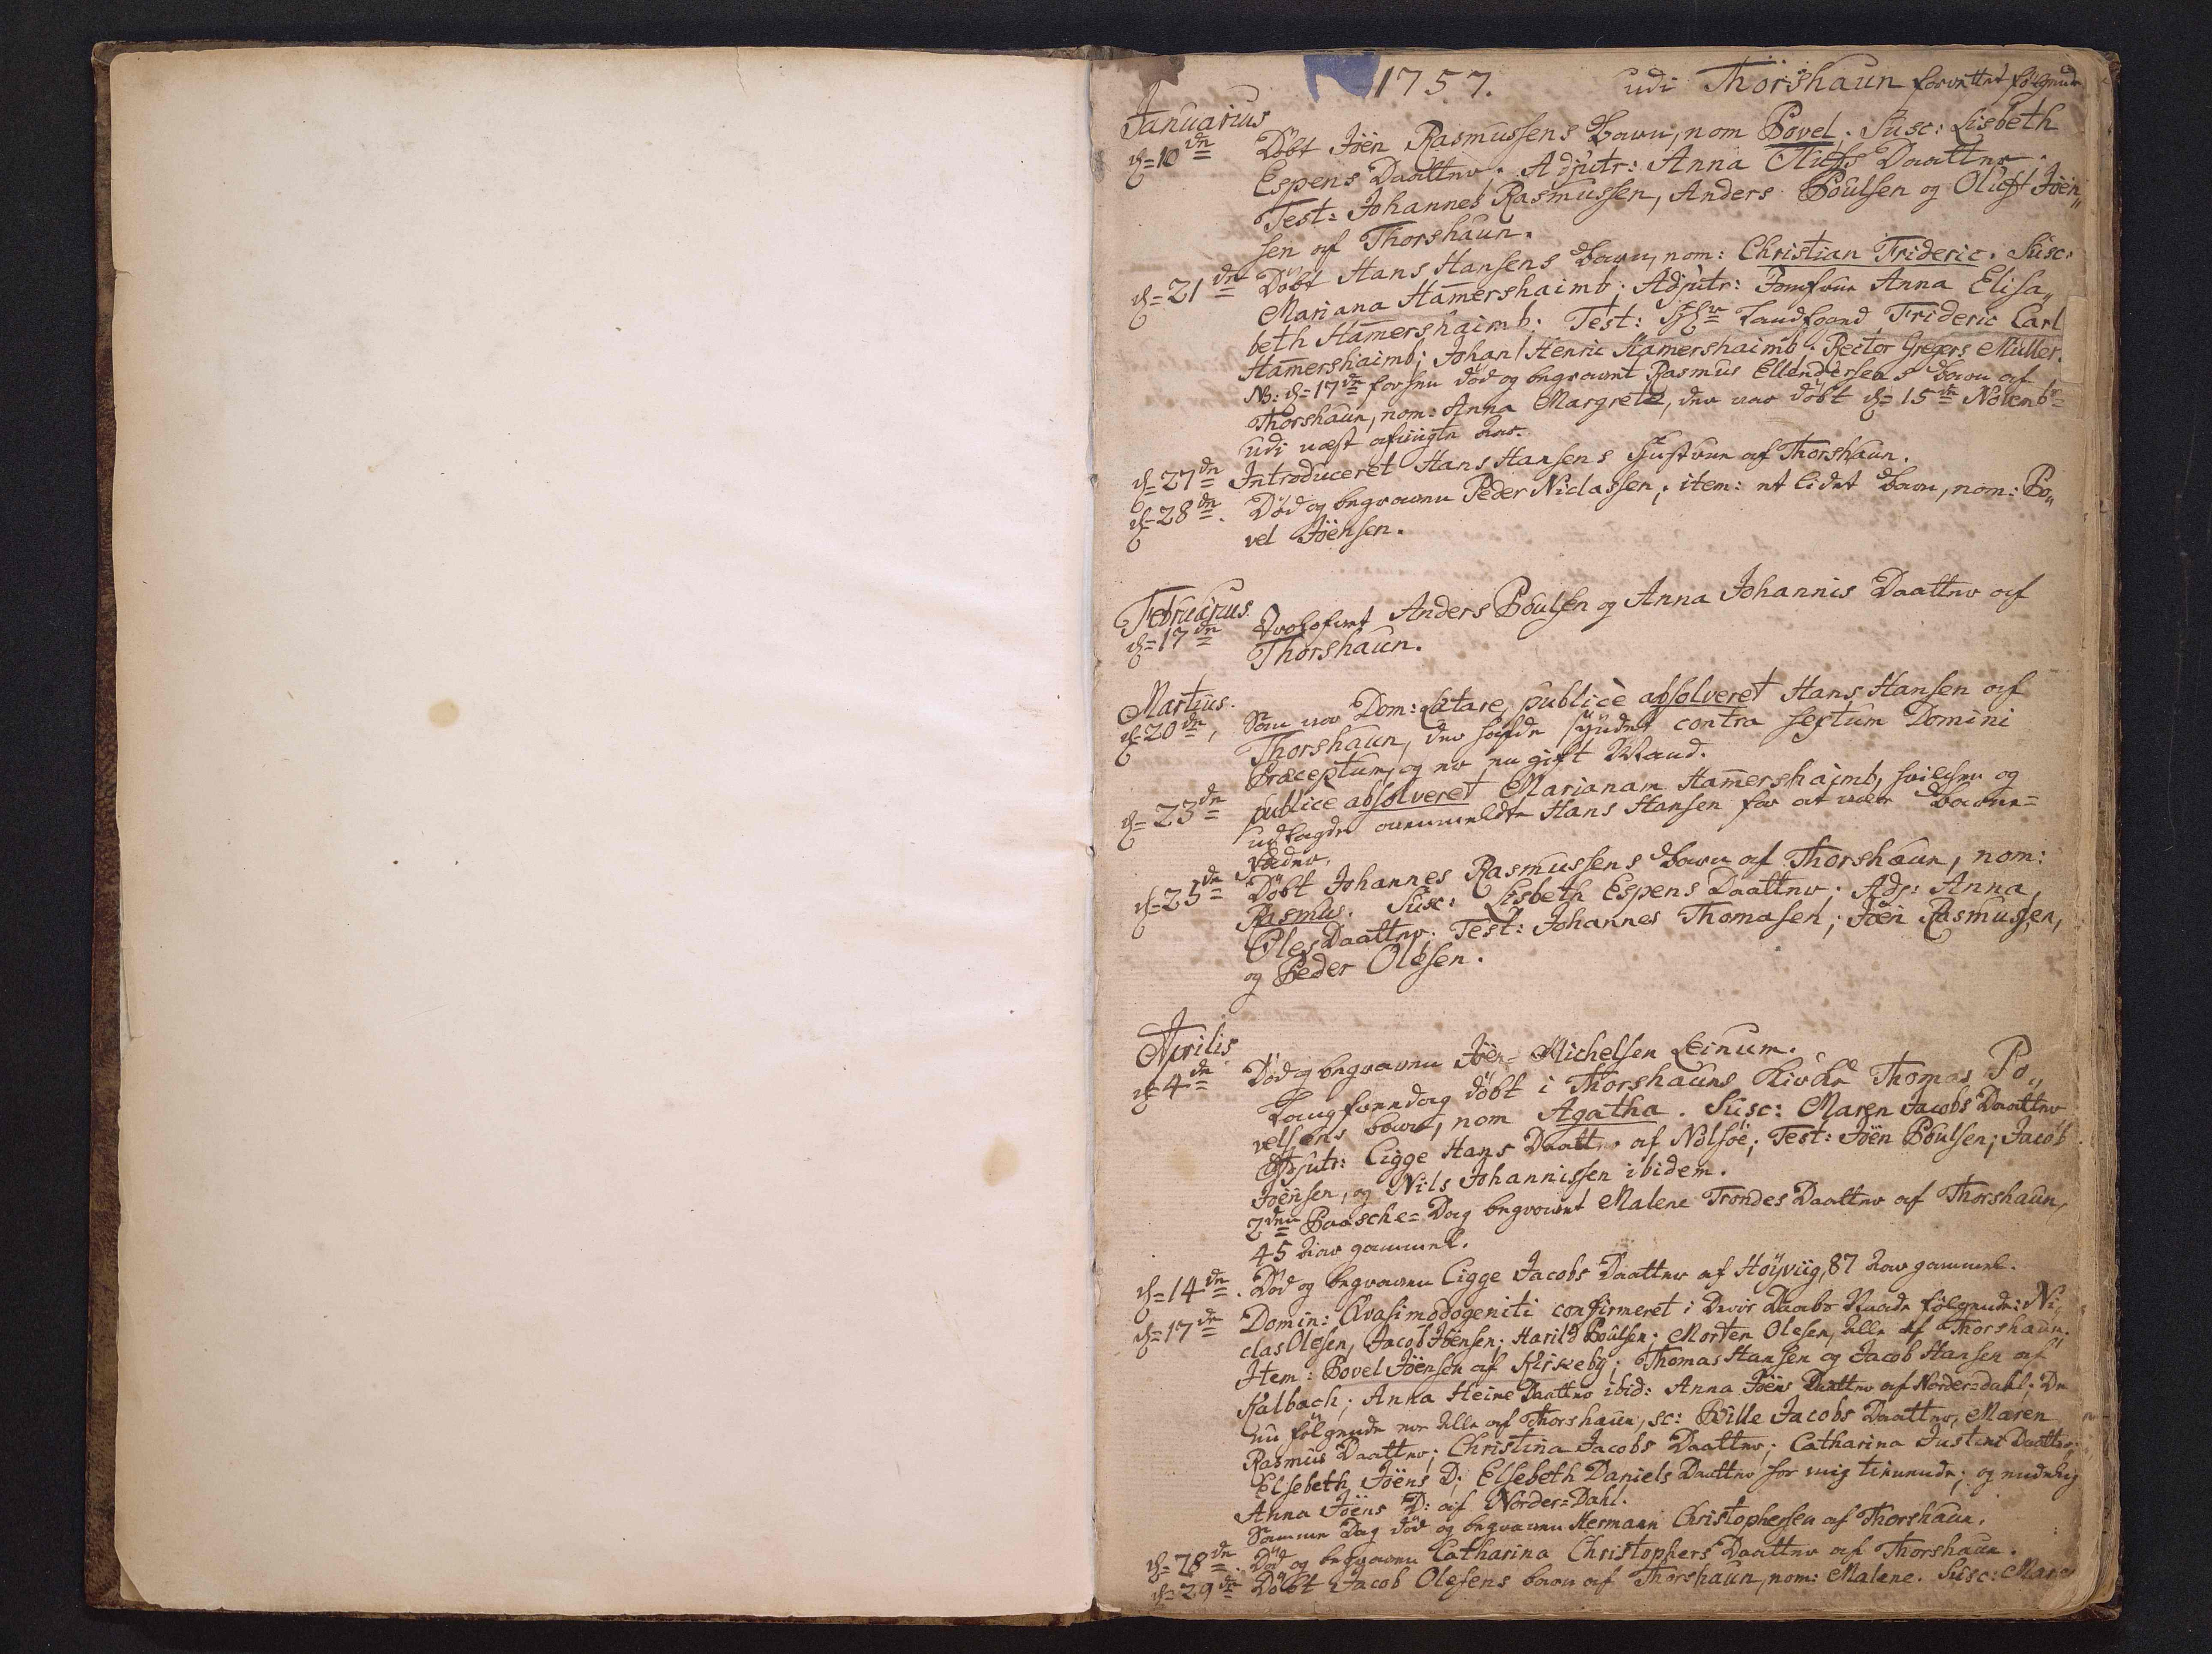 1757. udi Thorshaun forrettet følgende
Januarius
d. 10de Döbt Jöen Rasmussens Barn, nom Povel. Susc: Lisbeth
Espens Daatter. Adjutr: Anna Olufs Daatter.
Test: Johannes Rasmussen, Anders Poulsen og Oluf Jöen„
sen af Thorshaun.
d. 21de Döbt Hans Hansens Barn, nom: Christian Frideric. Susc:
Mariana Hamershaimb. Adjutr: Jomfrue Anna Elisa„
beth Hamershaimb: Test: Hr Landfogd Frideric Carl
Hamershaimb; Johan Henric Hamershaimb. Rector Gregers Müller.
NB: d. 17de død og begravet Rasmus Ellendersens Barn af
Thorshaun, nom: Anna Margrete, der var döbt d. 15de Novembr
udi næst afvigte Aar.
d. 27de Introduceret Hans Hansens Hustrue af Thorshaun.
d. 28de. Död og begraven Peder Niclassen; item: et lidet Barn, nom: Po„
vel Jöensen.
Februarius.
d. 17de Trolofvet Anders Poulsen og Anna Johannis Daatter af
Thorshaun.
Martius.
d. 20de, Som var Dom: Lætare, publicè absolveret Hans Hansen af
Thorshaun, der hafde syndet contra sextum Domini
Præceptum, og er en gift Mand.
d. 23de publicè absolveret Marianam Hamershaimb, hvilken og
udlagde ovenmeldte Hans Hansen for at være Barne=
Fader.
d. 25de Döbt Johannes Rasmussens Barn af Thorshaun, nom:
Rasmus. Susc: Lisbeth Espens Daatter; Adj: Anna
Oles Daatter. Test: Johannes Thomasen; Jöen Rasmussen,
og Peder Olesen.
Aprilis
d. 4de Död og begraven Jöen Michelsen Leinum.
Langfredag döbt i Thorshauns Kirke Thomas Po„
velsens barn, nom Agatha. Susc: Maren Jacobs Daatter
Adjutr: Cigge Hans Daatter af Nolsöe; Test: Jöen Poulsen; Jacob
Joensen, og Nils Johannissen ibidem.
2den Paasche=Dag begravet Malene Trondes Daatter af Thorshaun,
45 Aar gammel.
d. 14de. Död og begraven Cigge Jacobs Daatter af Höyviig, 87 Aar gammel.
d. 17de Domin: Qvasimodogeniti confirmeret i Deris Daabs Naade følgende: Ni„
clas Olesen, Jacob Jöensen; Harild Poulsen; Morten Olesen, Alle af Thorshaun.
Item: Povel Jöensen af Kirkeby; Thomas Hansen og Jacob Hansen af
Kalbach; Anna Heine Daatter ibid: Anna Jöens Daatter af Norder=dahl; De
nu følgende ere Alle af Thorshaun, sc: Bille Jacobs Daatter, Maren
Rasmus Daatter; Christina Jacobs Daatter; Catharina Justine Daatter;
Elsebeth Jöens D; Elsebeth Daniels Daatter hos mig tienende; og endelig
Anna Jöens D: af Norder=Dahl.
Samme Dag död og begraven Hermann Christophersen af Thorshaun.
d. 28de. Död og begraven Catharina Christophers Daatter af Thorshaun.
d. 29de Döbt Jacob Olesens barn af Thorshaun, nom: Malene. Susc: Maren